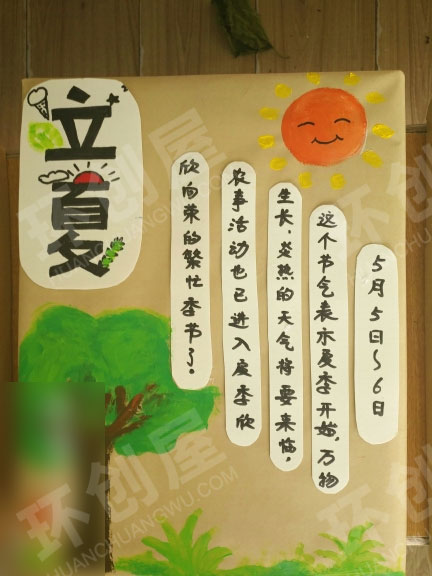 立夏
5月5日~6日
这个节气表示夏季开始,万物
生长,炎热的天气将要来临,
农事活动也已进入夏季欣
欣向荣的繁忙季节了。
环创屋
HUANCHUANGWU.COM